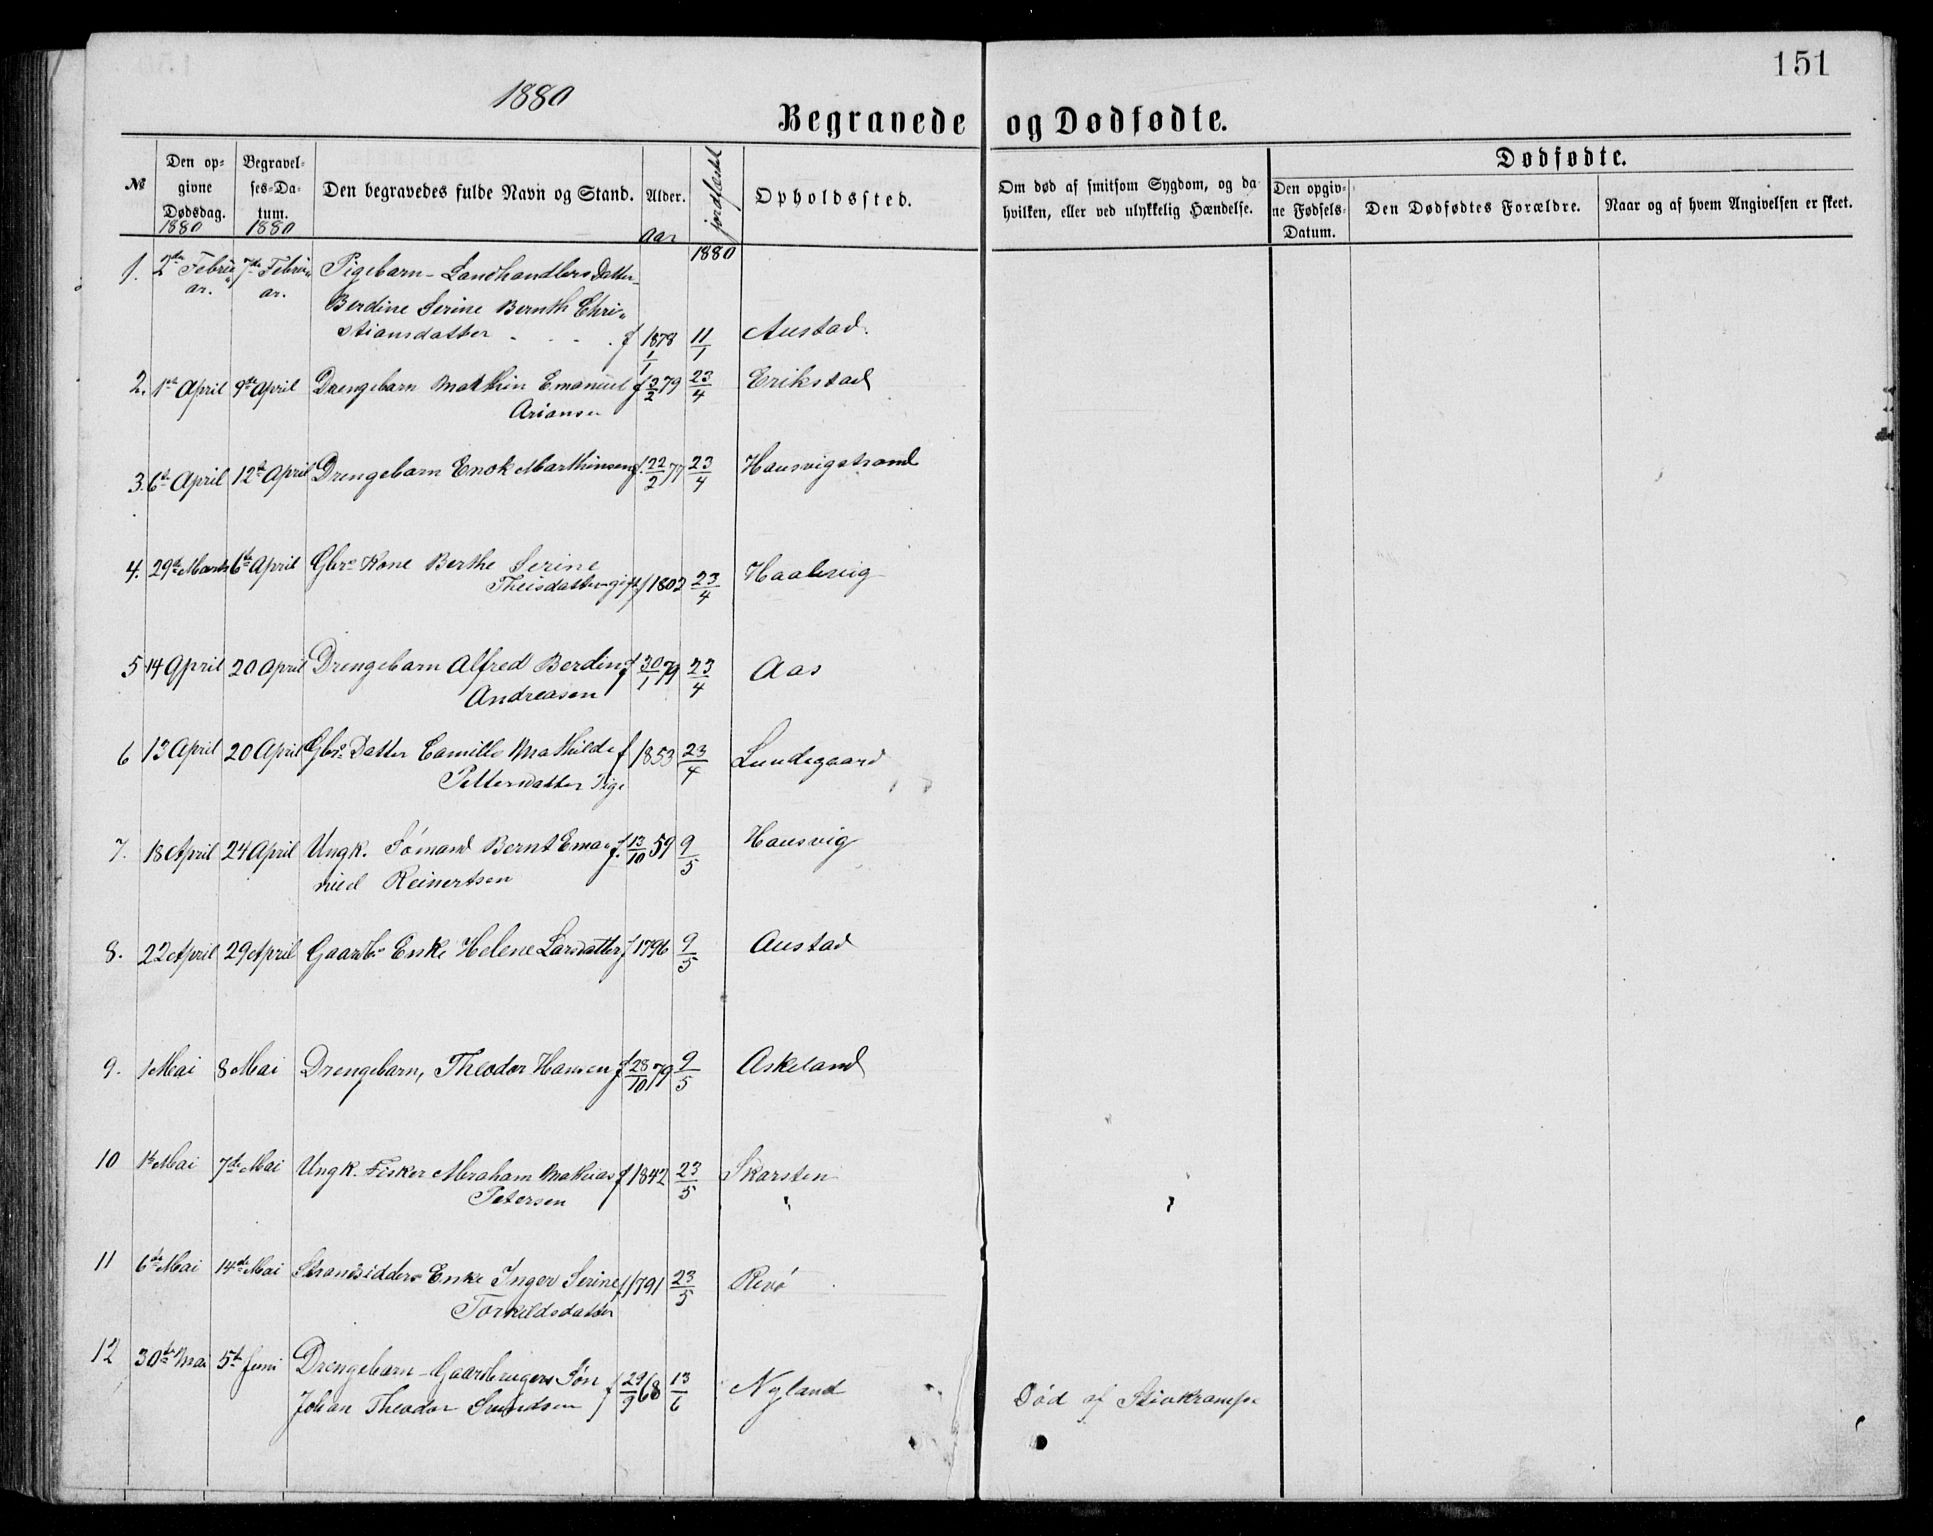 151
1880
Begravede og Dødfødte.
№
Den opgivne Dødsdag. 1880
Begravelses-Datum. 1880
Den begravedes fulde Navn og Stand.
Alder. Aar
jordfæstet 1880
Opholdssted.
Om død af smitsom Sygdom, og da
hvilken, eller ved ulykkelig Hændelse.
Dødfødte.
Den opgivne Fødsels-Datum.
Den Dødfødtes Forældre.
Naar og af hvem Angivelsen er skeet.
1. 2de Februar. 7de Februar. Pigebarn - Landhandlers Datter
Berdine Serine Bernth Chri-
stiansdatter f 1878 1/1 11/1 Austad.
2. 1st April 9de April Drengebarn Mathin Emanuel f 3/2 79 23/4 Erikstad
Ariansen
3. 6te April 12te April Drengebarn Enok Marthinsen f. 22/2 77 23/4 Hausvigstrand
4. 29de Marts 6te April Gbrs Kone Berthe Serine
Theisdatter gift f 1802 23/4 Haalvig
5 14 April 20 April Drengebarn Alfred Berdin f 30/1 79 23/4 Aas
Andreasen
6 13 April 20 April Gbrs Datter Camille Mathilde f 1853 23/4 Lundegaard
Pettersdatter Pige
7. 18 April 24 April Ungk. Sømand Bernt Ema- f. 13/10 59 9/5 Hausvig
nuel Reinertsen
8. 22 April 29 April Gaardbs Enke Helene Larsdatter f 1796 9/5 Austad
9. 1 Mai 8 Mai Drengebarn, Theodor Hansen f 28/10 79 9/5 Askeland
10 1st Mai 7de Mai Ungk. Fisker Abraham Mathias f 1842 23/5 Skarsten
Petersen
11 6te Mai 14de Mai Strandsidders Enke Inger Serine f 1791 23/5 Revø
Torkildsdatter
12 30te Mai 5te Juni Drengebarn - Gaardbrugers Søn
Johan Theodor Svendsen f 29/9 68 13/6 Nyland Død af Stivkrampe